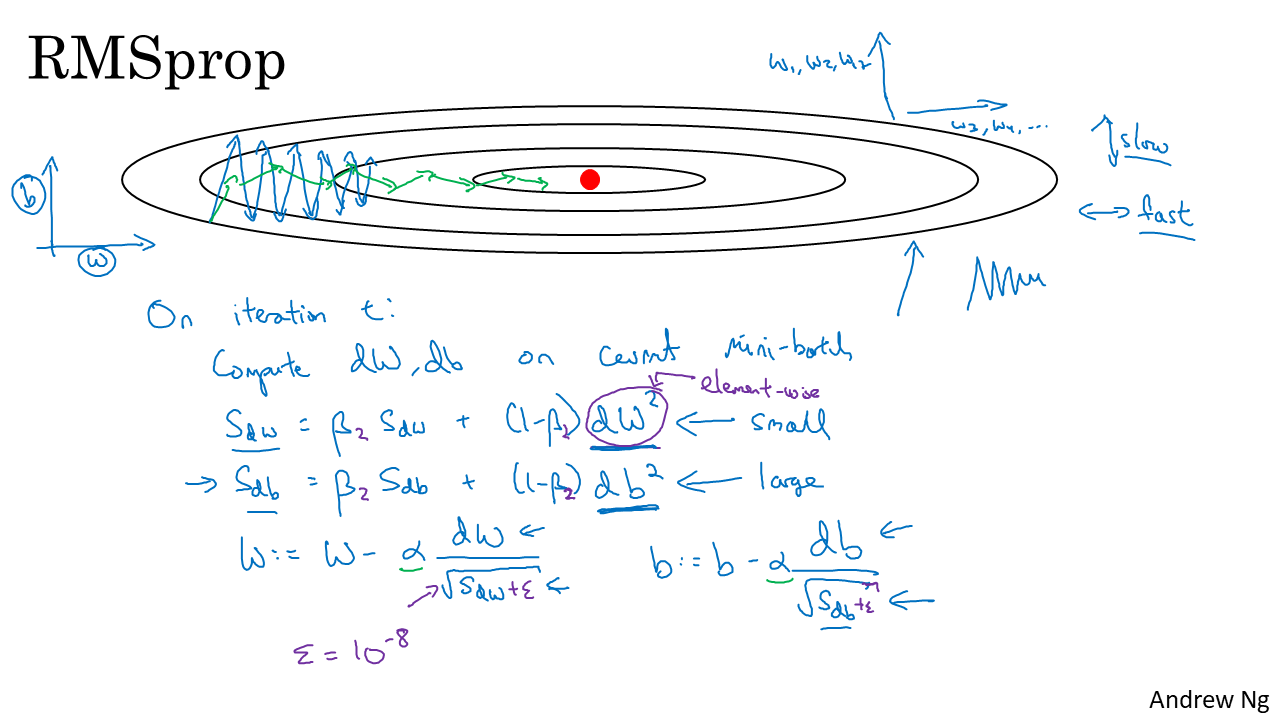 RMSprop
w₁, w₂, w₂
w₃, w₄, ...
slow
fast
b
w
On iteration t:
Compute dW, db on current mini-batch
element-wise
S_dw = β₂ S_dw + (1-β₂) dW² ← small
→ S_db = β₂ S_db + (1-β₂) db² ← large
W := W - α dW / √(S_dw + ε) ←
b := b - α db / √(S_db + ε) ←
ε = 10⁻⁸
Andrew Ng